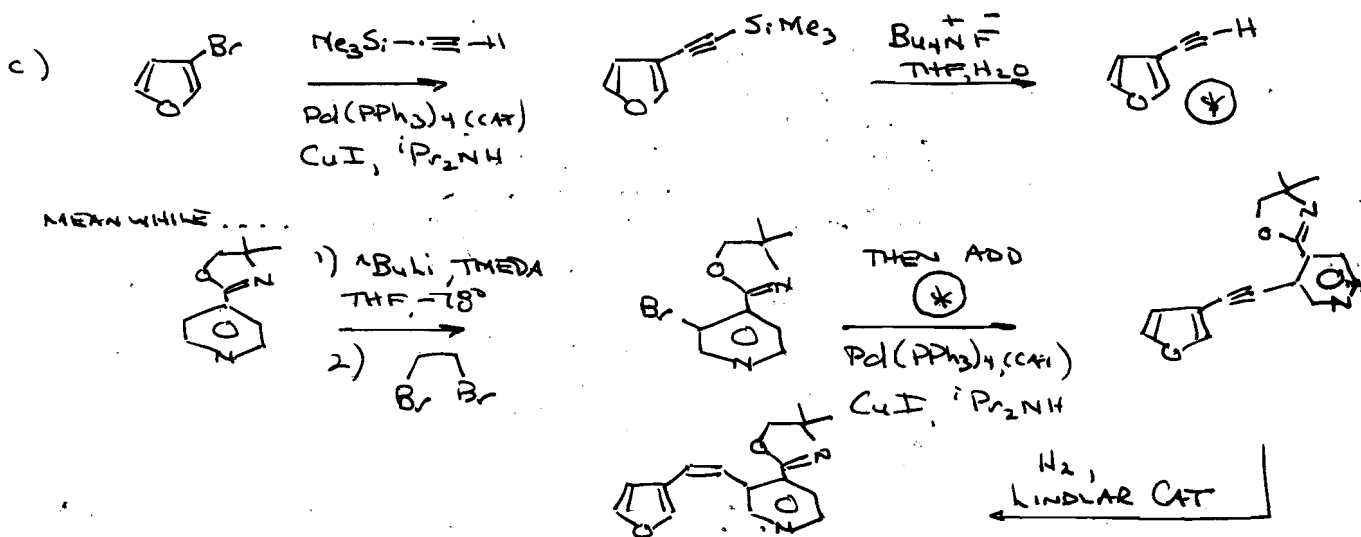 c)
Br
O
Me3Si-≡-H
Pd(PPh3)4 (CAT)
CuI, iPr2NH
SiMe3
O
Bu4N+ F-
THF, H2O
H
O
*
MEANWHILE ....
O
N
N
1) nBuLi, TMEDA
THF, -78°
2)
Br Br
O
N
Br
N
THEN ADD
*
Pd(PPh3)4, (CAT)
CuI, iPr2NH
O
N
N
O
H2,
LINDLAR CAT
O
N
N
O